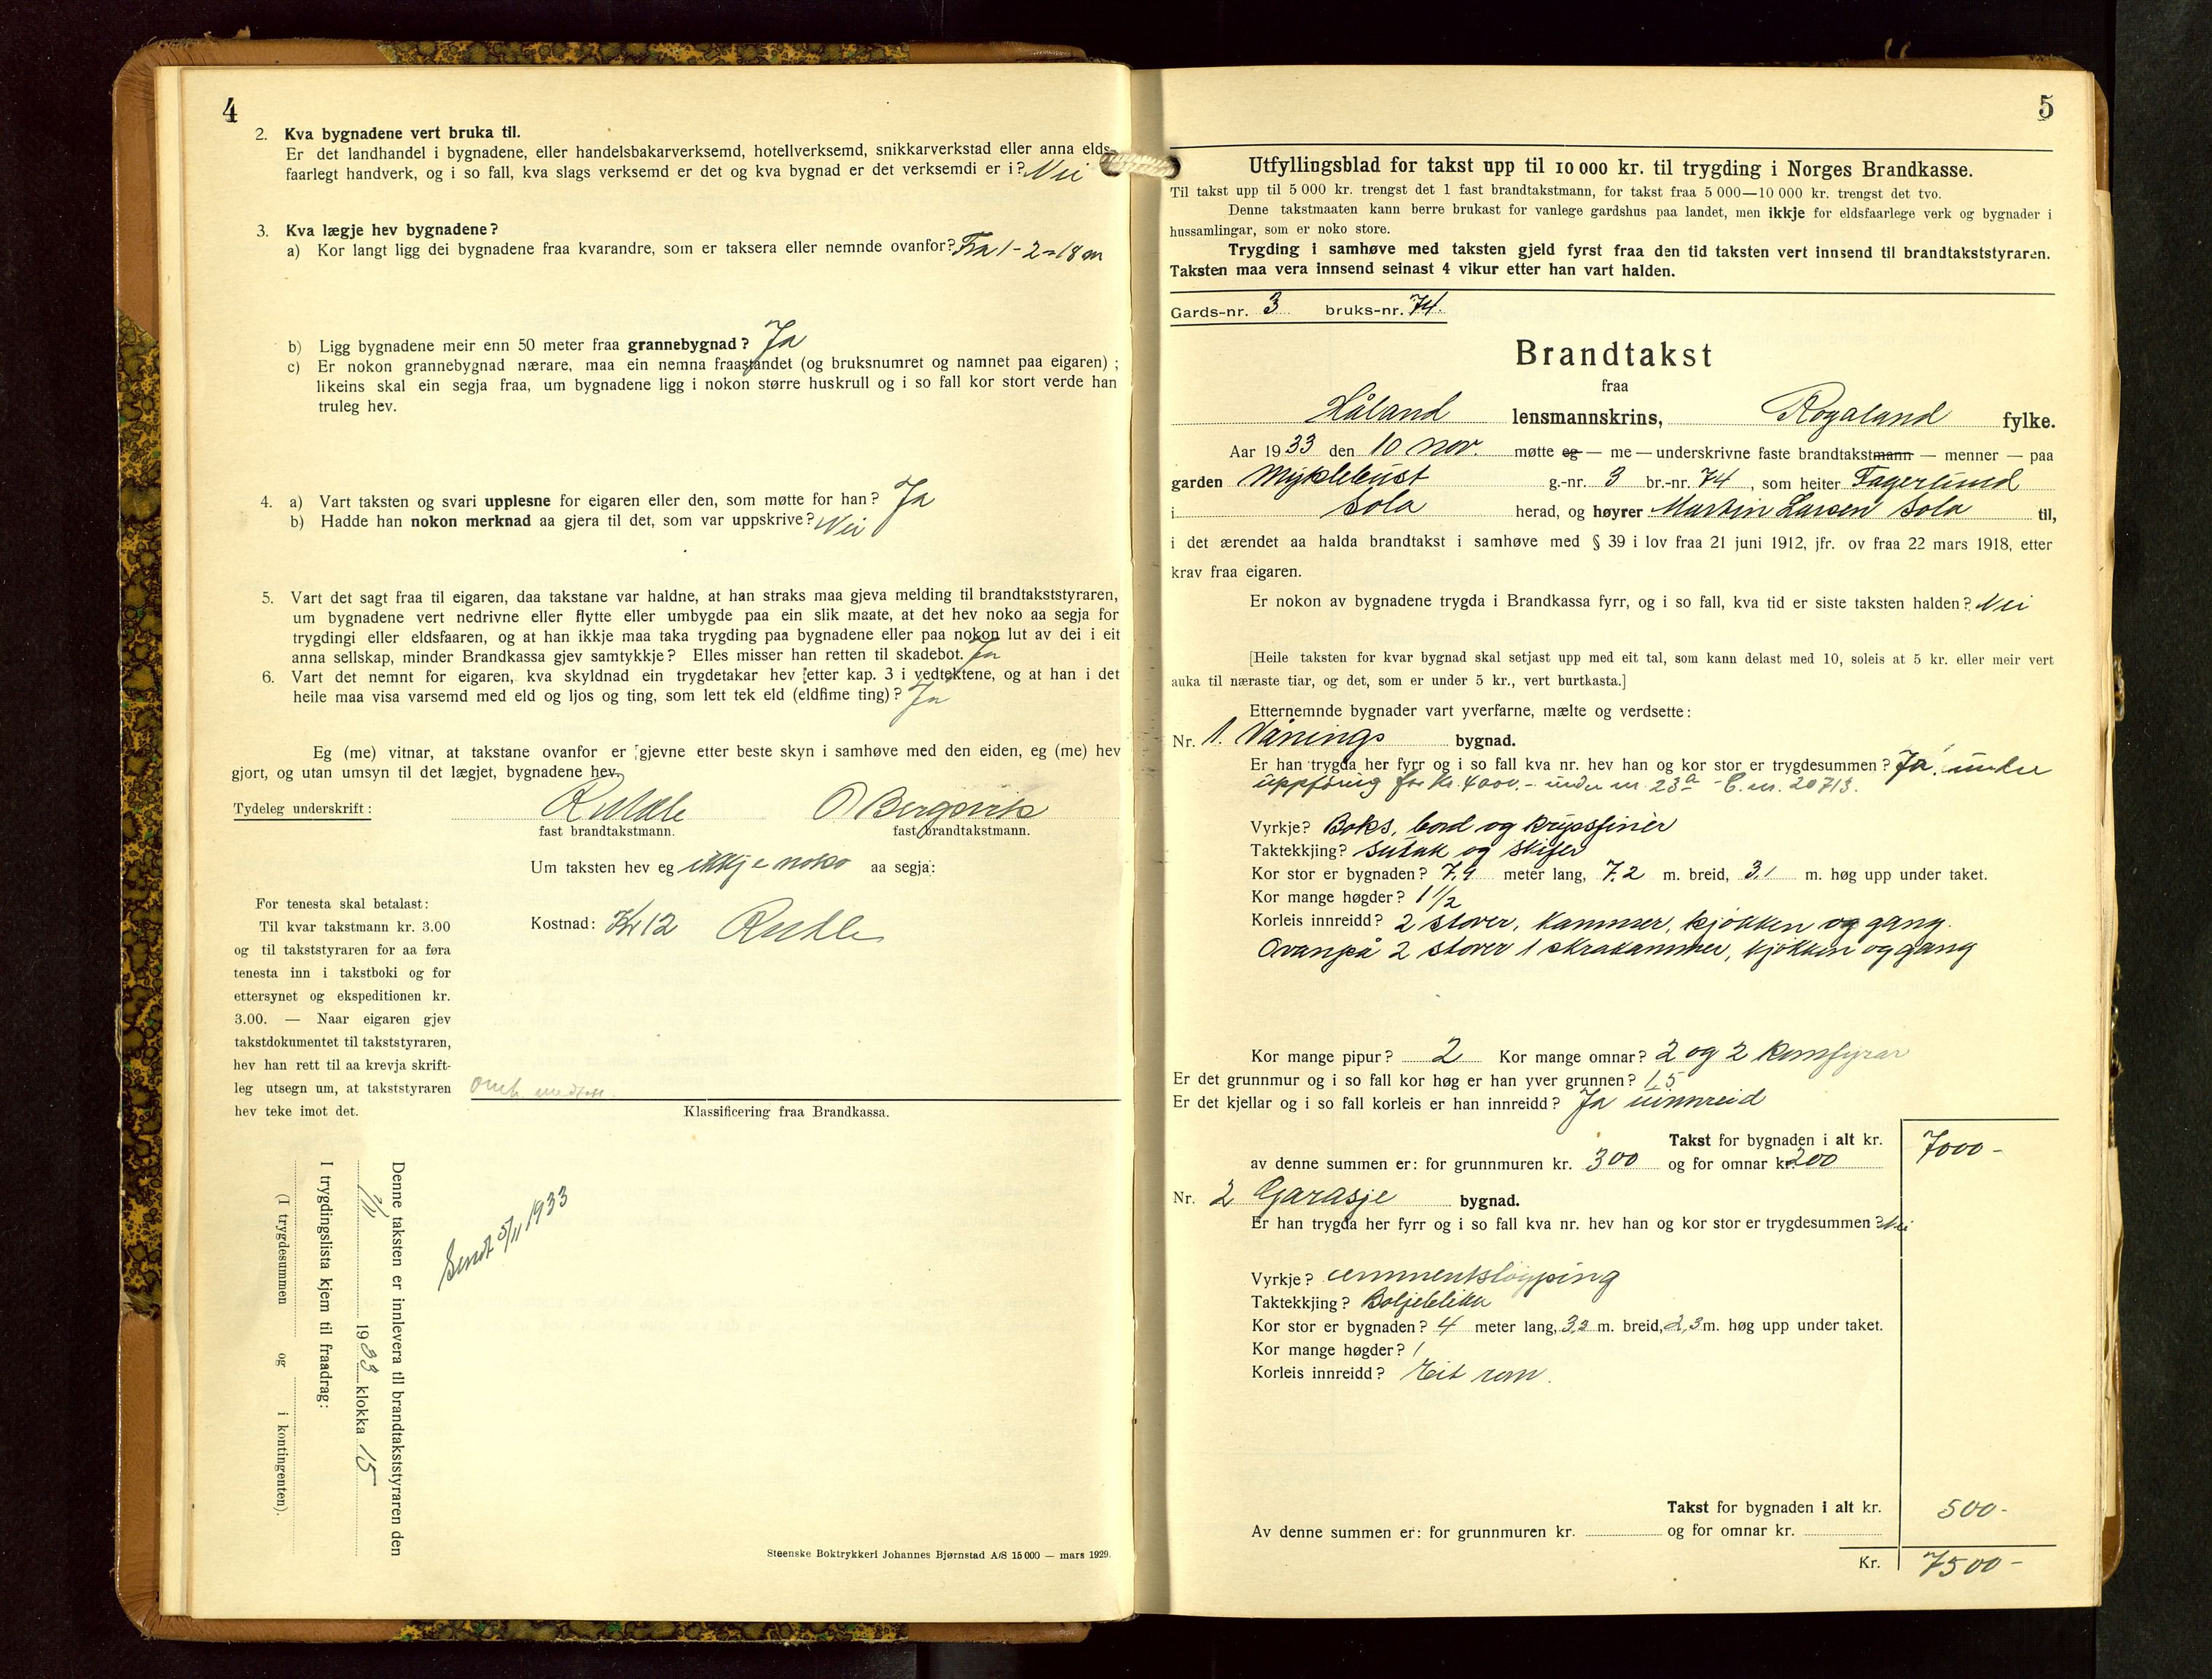 4
2. Kva bygnadene vert bruka til.
Er det landhandel i bygnadene, eller handelsbakarverksemd, hotellverksemd, snikkarverkstad eller anna elds-
faarlegt handverk, og i so fall, kva slags verksemd er det og kva bygnad er det verksemdi er i? Nei
3. Kva lægje hev bygnadene?
a) Kor langt ligg dei bygnadene fraa kvarandre, som er taksera eller nemnde ovanfor? Fra 1-2=18 m
b) Ligg bygnadene meir enn 50 meter fraa grannebygnad? Ja
c) Er nokon grannebygnad nærare, maa ein nemna fraastandet (og bruksnumret og namnet paa eigaren) ;
likeins skal ein segja fraa, um bygnadene ligg i nokon større huskrull og i so fall kor stort verde han
truleg hev.
4. a) Vart taksten og svari upplesne for eigaren eller den, som møtte for han? Ja
b) Hadde han nokon merknad aa gjera til det, som var uppskrive? Nei
5. Vart det sagt fraa til eigaren, daa takstane var haldne, at han straks maa gjeva melding til brandtakststyraren,
um bygnadene vert nedrivne eller flytte eller umbygde paa ein slik maate, at det hev noko aa segja for
trygdingi eller eldsfaaren, og at han ikkje maa taka trygding paa bygnadene eller paa nokon lut av dei i eit
anna sellskap, minder Brandkassa gjev samtykkje? Elles misser han retten til skadebot. Ja
6. Vart det nemnt for eigaren, kva skyldnad ein trygdetakar hev etter kap. 3 i vedtektene, og at han i det
heile maa visa varsemd med eld og ljos og ting, som lett tek eld (eldfime ting)? Ja
Eg (me) vitnar, at takstane ovanfor er gjevne etter beste skyn i samhøve med den eiden, eg (me) hev
gjort, og utan umsyn til det lægjet, bygnadene hev.
Tydeleg underskrift: O Bergsvik
fast brandtakstmann. fast brandtakstmann.
Um taksten hev eg ikkje noko aa segja:
For tenesta skal betalast:
Til kvar takstmann kr. 3.00
og til takststyraren for aa føra
tenesta inn i takstboki og for
ettersynet og ekspeditionen kr.
3.00. — Naar eigaren gjev
takstdokumentet til takststyraren,
hev han rett til aa krevja skrift-
leg utsegn um, at takststyraren
hev teke imot det.
Kostnad: Kr 12
Klassificering fraa Brandkassa.
Denne taksten er innlevera til brandtakststyraren den
1933 klokka 15
I trygdingslista kjem til fraadrag:
(I trygdesummen og i kontingenten).
Sendt 5/11 1933
Steenske Boktrykkeri Johannes Bjørnstad A/S 15000 — mars 1929.
5
Utfyllingsblad for takst upp til 10 000 kr. til trygding i Norges Brandkasse.
Til takst upp til 5 000 kr. trengst det 1 fast brandtakstmann, for takst fraa 5 000—10 000 kr. trengst det tvo.
Denne takstmaaten kann berre brukast for vanlege gardshus paa landet, men ikkje for eldsfaarlege verk og bygnader i
hussamlingar, som er noko store.
Trygding i samhøve med taksten gjeld fyrst fraa den tid taksten vert innsend til brandtakststyraren.
Taksten maa vera innsend seinast 4 vikur etter han vart halden.
Gards-nr. 3 bruks-nr. 74.
Brandtakst
fraa
Håland lensmannskrins, Rogaland fylke.
Aar 1933 den 10 nov. møtte eg — me — underskrivne faste brandtakstmann — menner — paa
garden Myklebust g.-nr. 3 br.-nr. 74, som heiter Fagerlund
i Sola herad, og høyrer Martin Larsen Sola til,
i det ærendet aa halda brandtakst i samhøve med § 39 i lov fraa 21 juni 1912, jfr. ov fraa 22 mars 1918, etter
krav fraa eigaren.
Er nokon av bygnadene trygda i Brandkassa fyrr, og i so fall, kva tid er siste taksten halden? Nei
[Heile taksten for kvar bygnad skal setjast upp med eit tal, som kann delast med 10, soleis at 5 kr. eller meir vert
auka til næraste tiar, og det, som er under 5 kr., vert burtkasta.]
Etternemnde bygnader vart yverfarne, mælte og verdsette:
Nr. 1. Vånings bygnad.
Er han trygda her fyrr og i so fall kva nr. hev han og kor stor er trygdesummen? Ja under
uppföring for kr. 4000.- under nr 23a - C. nr. 20713.
Vyrkje? Boks, bord og krysfiner
Taktekkjing? sutak og skifer
Kor stor er bygnaden? 7,9 meter lang, 7,2 m. breid, 3,1 m. høg upp under taket.
Kor mange høgder? 1 1/2
Korleis innreidd? 2 stover, kammer, kjökken og gang.
Ovanpå 2 stover 1 skrakammer, kjökken og gang
Kor mange pipur? 2 Kor mange omnar? 2 og 2 komfyrar
Er det grunnmur og i so fall kor høg er han yver grunnen? 1,5
Er det kjellar og i so fall korleis er han innreidd? Ja uinnreid
Takst for bygnaden i alt kr. 7000-
av denne summen er: for grunnmuren kr. 300 og for omnar kr. 200
Nr. 2 Garasje bygnad.
Er han trygda her fyrr og i so fall kva nr. hev han og kor stor er trygdesummen? Nei
Vyrkje? cementstöyping
Taktekkjing? Bøljeblikk
Kor stor er bygnaden? 4 meter lang, 3,2 m. breid, 2,3 m. høg upp under taket.
Kor mange høgder? 1
Korleis innreidd? Eit rom.
Takst for bygnaden i alt kr. 500-
Av denne summen er: for grunnmuren kr. og for omnar kr.
Kr. 7500-